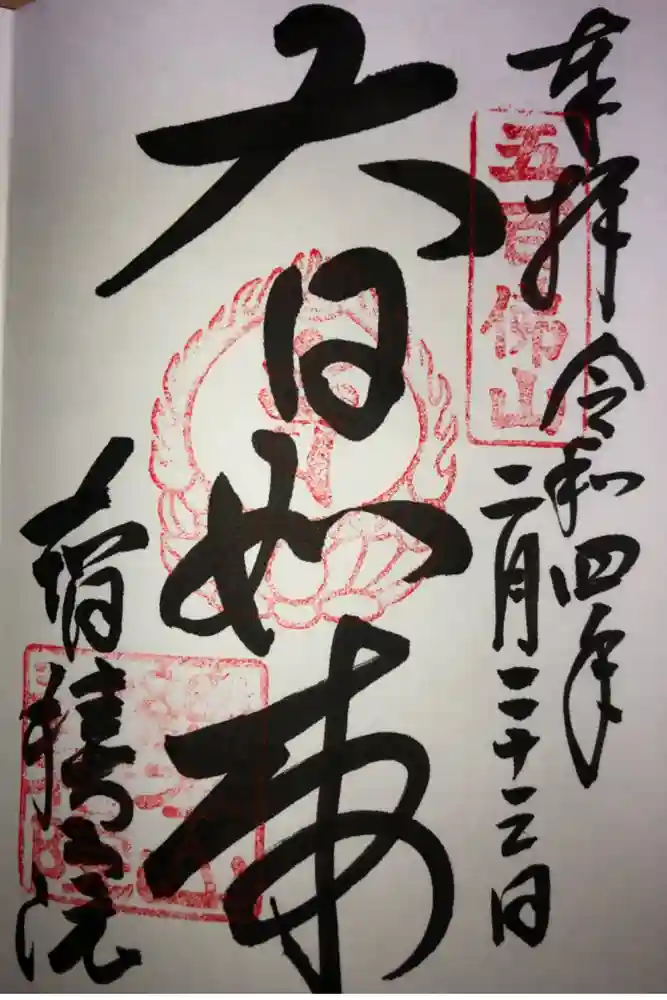 奉拝
令和四年
二月二十三日
五百佛山
大日如来
智積院